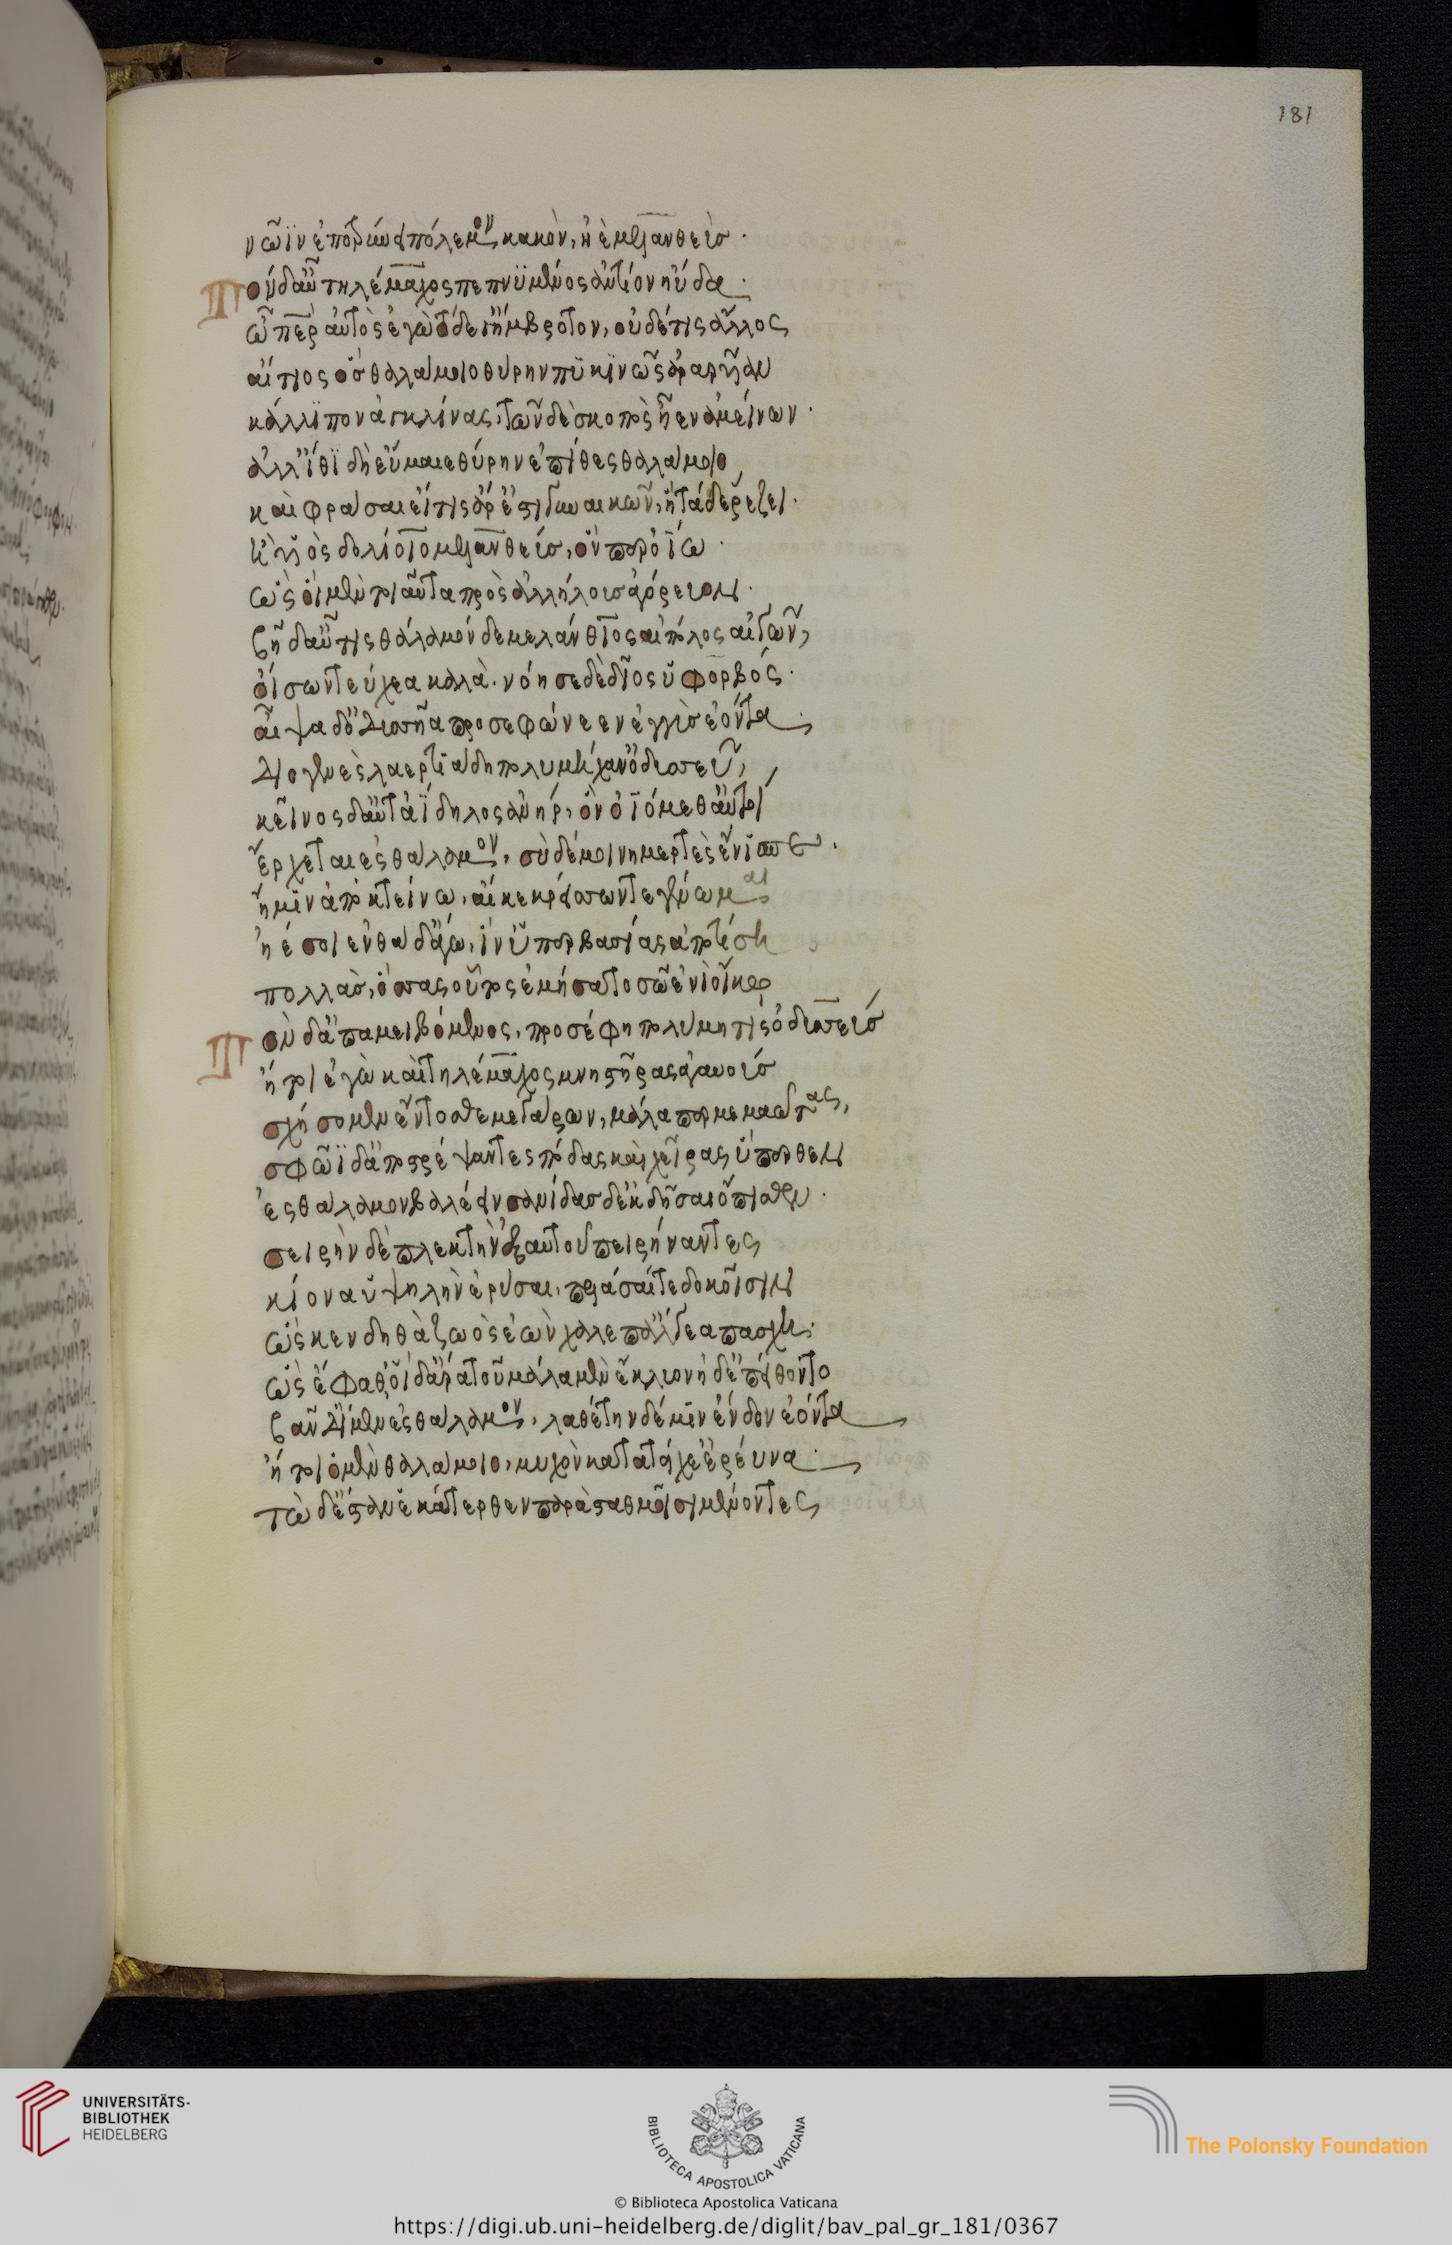 181
νῶϊν ἐποτρύνει πόλεμον κακὸν, ἠὲ μελανθεὺσ·
Τὸν δαῦ τηλέμαχος πεπνϋμένος ἀντίον ηὔδα·
ὦ πάτερ αὐτὸς ἐγὼ τόδε γἤμβροτον, οὐδέ τις ἄλλος
αἴτιος ὅσ θαλάμοιο θύρην πϋκϊνῶς ἀραρῦιαν
κάλλϊπον ἀγκλίνας, τῶν δὲ σκοπὸς ἦεν ἀμείνων·
ἀλλἴθϊ δῖ εὔμαιε θύρην ἐπίθες θαλάμοιο
καὶ φράσαι εἴ τις ἄρ ἐστὶ γυναικῶν, ἣ τάδε ῥέζει·
ἢ ὑιὸς δολίοιο μελανθεύσ, ὅν περ ὀΐω·
ὣς ὁι μὲν τοιαῦτα πρὸς ἀλλήλουσ ἀγόρευον·
βῆ δαὖτις θάλαμόνδε μελάνθιος αἰπόλος αἰγῶν,
οἴσων τεύχεα καλὰ· νόησε δὲ δῖος ὑφορβός·
αἶψα δὀδυσσῆα προσεφώνεεν ἐγγὺσ ἐόντα·
διογενὲς λαερτϊάδη πολυμήχανὀδυσσεῦ,
κεῖνος δαὖτἀΐδηλος ἀνὴρ, ὃν ὀϊόμεθαὐτοί
ἔρχεται ἐς θάλαμον, σὺ δέ μοι νημερτὲς ἔνϊσπε·
ἤ μιν ἀποκτείνω, αἴ κε κρείσσων γε γένωμαι
ἠέ σοι ἐνθάδἄγω, ἵνὑπερβασίας ἀποτίσῃ
πολλὰσ, ὅσσας οὗτος ἐμήσατο σῶ ἐνὶ οἴκω
Τὸν δἀπαμειβόμενος, προσέφη πολύμητις ὀδυσσεύσ
ἤτοι ἐγὼ καὶ τηλέμαχος μνηστῆρας ἀγαυούσ
σχήσομεν ἔντοσθε μεγάρων, μάλα περ μεμαῶτας,
σφῶϊ δἀποστρέψαντες πόδας καὶ χεῖρας ὕπερθεν
ἐς θάλαμον βαλέειν σανίδασ δἐκδῆσαι ὄπισθεν·
σειρὴν δὲ πλεκτὴν ἐξ αὐτοῦ πειρήναντες
κίονἀνὑψηλὴν ἐρύσαι, πελάσαί τε δοκοῖσιν
ὥς κεν δηθὰ ζωὸς ἐὼν χαλεπἄλγεα πασχῃ·
ὣς ἔφαθ, ὁι δἄρα τοῦ μάλα μὲν ἔκλυον ἠδἐπίθοντο
βὰν δἴμεν ἐς θάλαμον, λαθέτην δέ μιν ἔνδον ἐόντα
ἤτοι ὁ μὲν θαλάμοιο, μυχὸν κάτα τεύχεἐρεύνα·
τὼ δἔσταν ἑκάτερθεν παρὰ σταθμοῖσι μένοντες
UNIVERSITÄTS-
BIBLIOTHEK
HEIDELBERG
BIBLIOTECA APOSTOLICA VATICANA
© Biblioteca Apostolica Vaticana
The Polonsky Foundation
https://digi.ub.uni-heidelberg.de/diglit/bav_pal_gr_181/0367